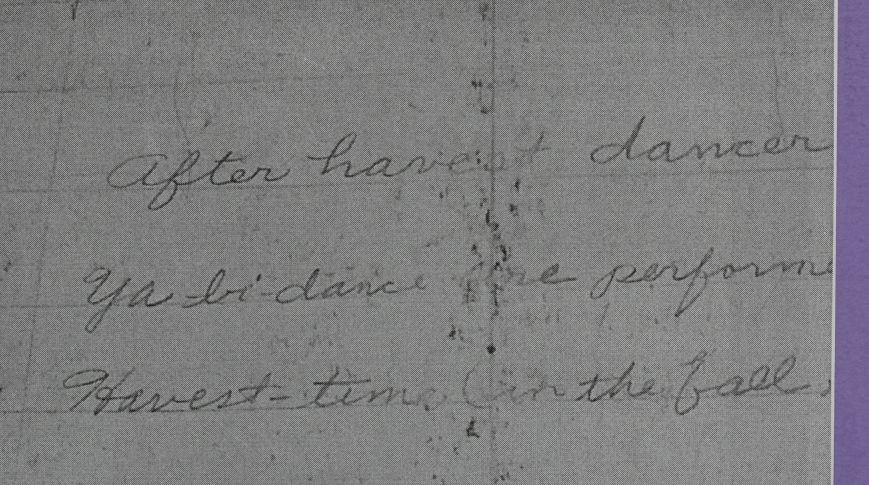 After havest dancer
Ya-bi-dance are performe
Havest-time (in the fall,